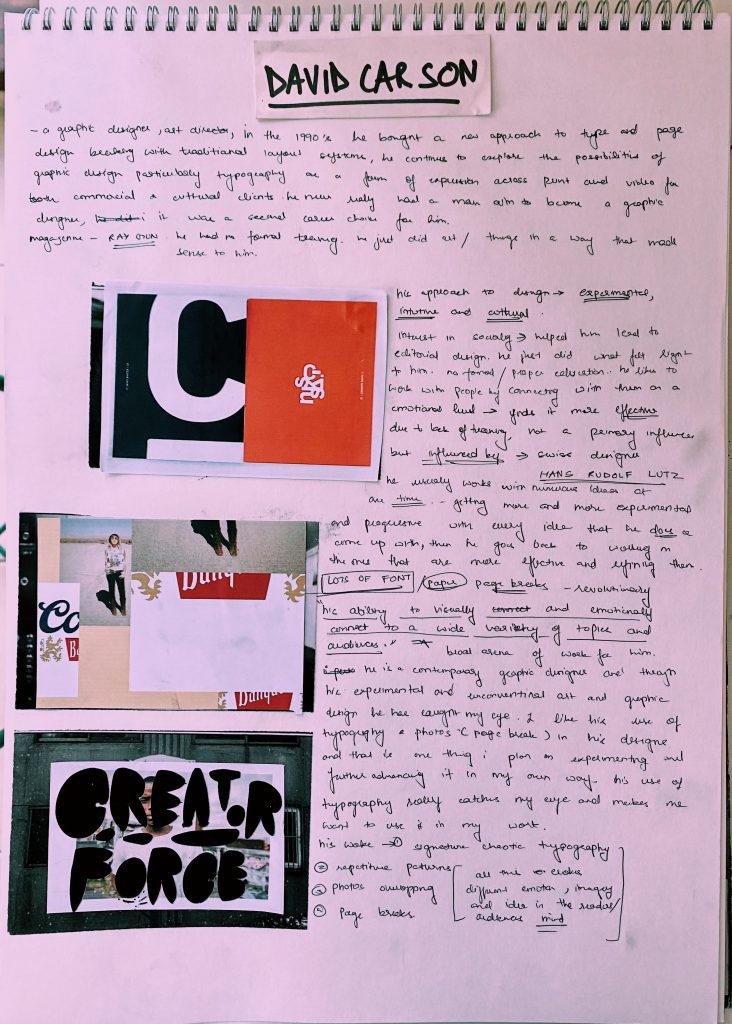 DAVID CARSON
- a graphic designer, art director, in the 1990's he bought a new approach to type and page
design breaking with traditional layout systems, he continues to explore the possibilities of
graphic design particularly typography as a form of expression across print and video for
both commercial & cultural clients. he never really had a main aim to become a graphic
designer, it was a second career choice for him.
magazine - RAY GUN he had no formal training. he just did art / things in a way that made
sense to him.
his approach to design → experimental,
intuitive and cultural.
intrest in sociology → helped him lead to
editorial design. he just did what felt right
to him. no formal / proper education. he likes to
work with people by connecting with them on a
emotional level → finds it more effective
due to lack of training, not a primary influencer
but influenced by → swiss designer
HANS RUDOLF LUTZ
he usually works with numerous ideas at
one time. - getting more and more experimental
and progressive with every idea that he does &
come up with, then he goes back to working on
the ones that are more effective and refining them.
LOTS OF FONT / paper page breaks - revolutionary
"his ability to visually connect and emotionally
connect to a wide variety of topics and
audiences."
broad arena of work for him.
he is a contemporary graphic designer and through
his experimental and unconventional art and graphic
design he has caught my eye. I like his use of
typography & photos (page break) in his designs
and that is one thing i plan on experimenting and
further advancing it in my own way. his use of
typography really catches my eye and makes me
want to use it in my work.
his works → ① signature chaotic typography
② repetitive patterns
③ photos overlapping
④ page breaks
all this evokes
different emotion, imagery
and idea in the readers/
audiences mind
C
Co
Ba
Banque
Banque
CREATOR
FORCE